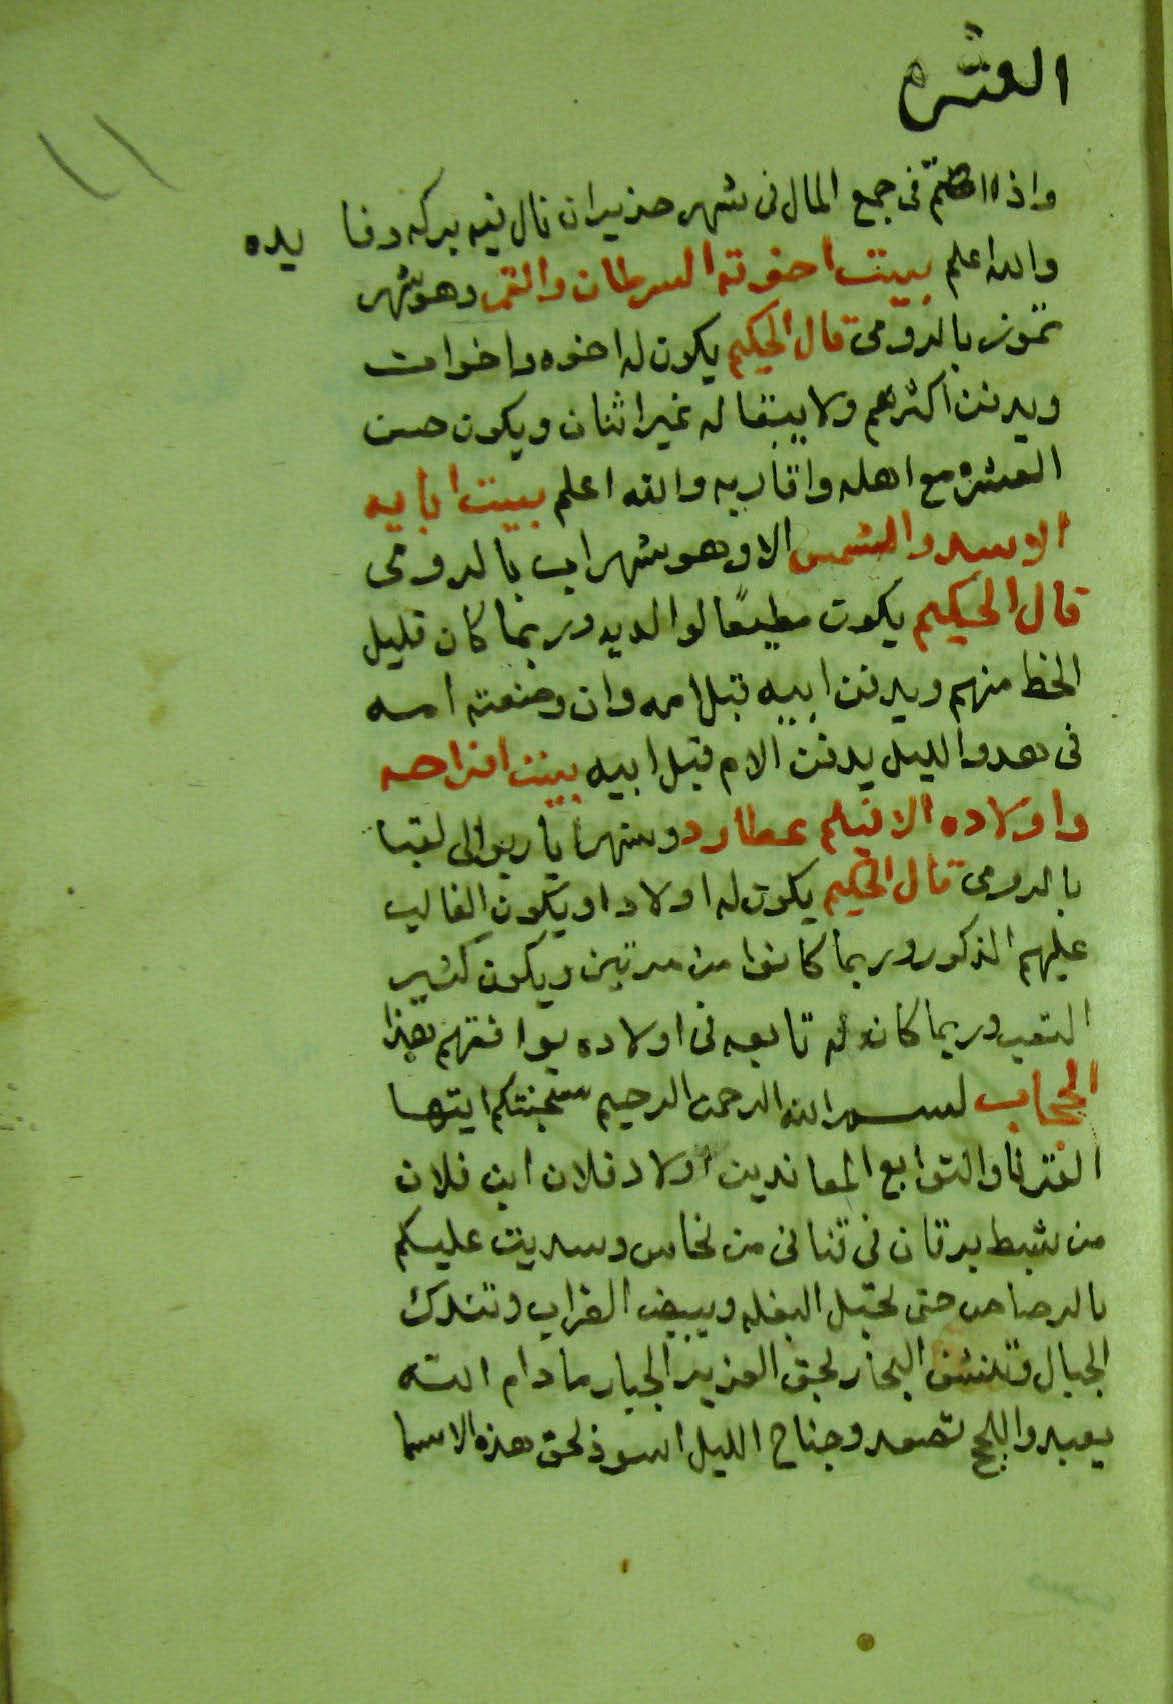 العشره
١١
واذا اهتم فى جمع المال فى شهر حزيران نال فيه بركه وفا يده
والله اعلم بييت اخوته السرطان والقمر وهو شهر
تموز بالرومى قال الحكيم يكون له اخوه واخوات
ويدفن اكثرهم ولا يبتقا له غير اثنان ويكون حسن
العشره مع اهله واقاربه والله اعلم بييت ابايه
الاسد والشمس الا وهو شهر اب بالرومى
قال الحكيم يكون مطيعًا لوالديه وربما كان قليل
الحظ منهم ويدفن ابيه قبل امه وان وضعته امه
فى هدو الليل يدفن الام قبل ابيه بييت افراحه
واولاده عطارد وشهر
بالرومى قال الحكيم يكون له اولادا ويكون الغالب
عليهم الذكور وربما كانوا من مرتين ويكون كثير
التعب وربما كانوله تابعه فى اولاده يوافقهم هذا
الحجاب بسم الله الرحمن الرحيم سجنتكم ايتها
القرنا والتوابع المعاندين اولاد فلان ابن فلان
من فى قنانى من نحاس وسديت عليكم
بالرصاص حتى تحبل البغله ويبيض الغراب وتندك
الجبال وتنشف البحار بحق العزيز الجبار مادام الله
يعبد والبلح تصعد وجناح الليل اسود بحق هذه الاسما